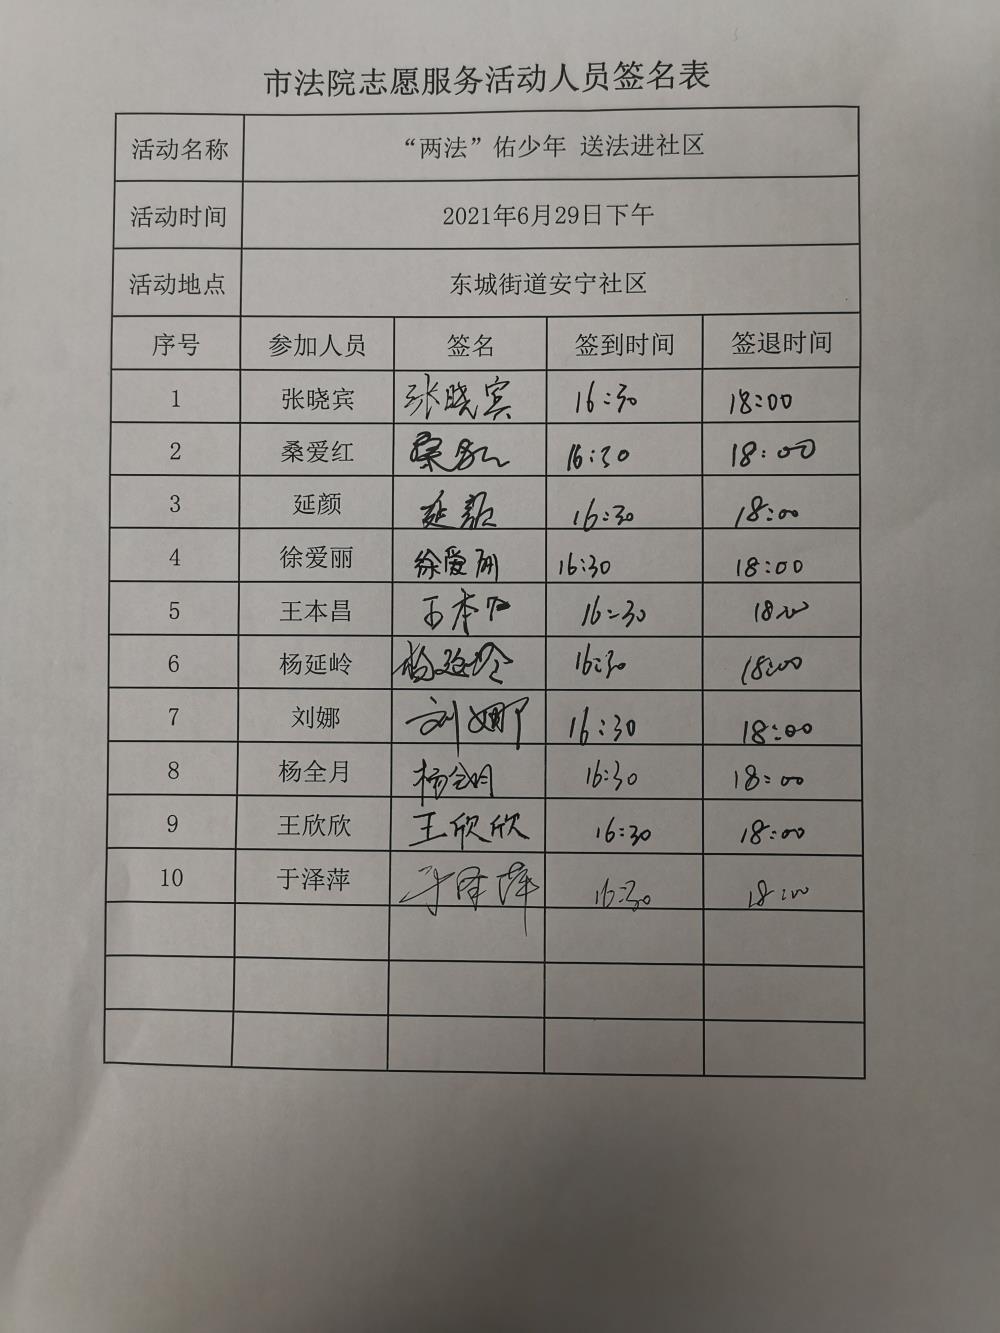 市法院志愿服务活动人员签名表
活动名称 “两法”佑少年 送法进社区
活动时间 2021年6月29日下午
活动地点 东城街道安宁社区
序号 参加人员 签名 签到时间 签退时间
1 张晓宾 张晓宾 16:30 18:00
2 桑爱红 桑爱红 16:30 18:00
3 延颜 延颜 16:30 18:00
4 徐爱丽 徐爱丽 16:30 18:00
5 王本昌 王本昌 16:30 18:00
6 杨延岭 杨延岭 16:30 18:00
7 刘娜 刘娜 16:30 18:00
8 杨全月 杨全月 16:30 18:00
9 王欣欣 王欣欣 16:30 18:00
10 于泽萍 于泽萍 16:30 18:00